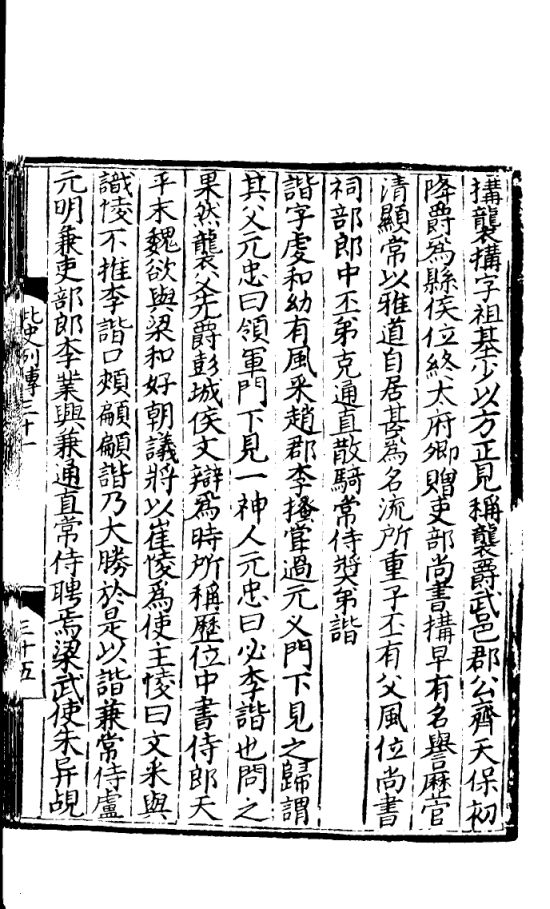 搆襲搆字祖基少以方正見稱襲爵武邑郡公齊天保初
降爵爲縣侯位終太府卿贈吏部尚書搆早有名譽歷官
清顯常以雅道自居甚爲名流所重子丕有父風位尚書
祠部郎中丕弟克通直散騎常侍奬弟諧
諧字虔和幼有風采趙郡李搔嘗過元义門下見之歸謂
其父元忠曰領軍門下見一神人元忠曰必李諧也問之
果然襲父先爵彭城侯文辯爲時所稱歷位中書侍郎天
平末魏欲與梁和好朝議將以崔㥄爲使主㥄曰文采與
識㥄不推李諧口頰顧顧諧乃大勝於是以諧兼常侍盧
元明兼吏部郎李業興兼通直常侍聘焉梁武使朱异覘
北史列傳三十一
三十五